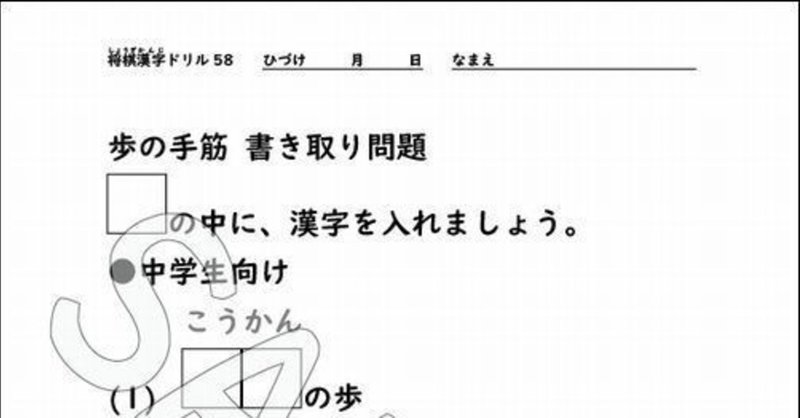 しょうぎかんじ
将棋漢字ドリル 58 ひづけ 月 日 なまえ
歩の手筋 書き取り問題
□の中に、漢字を入れましょう。
●中学生向け
こうかん
(1) □□の歩